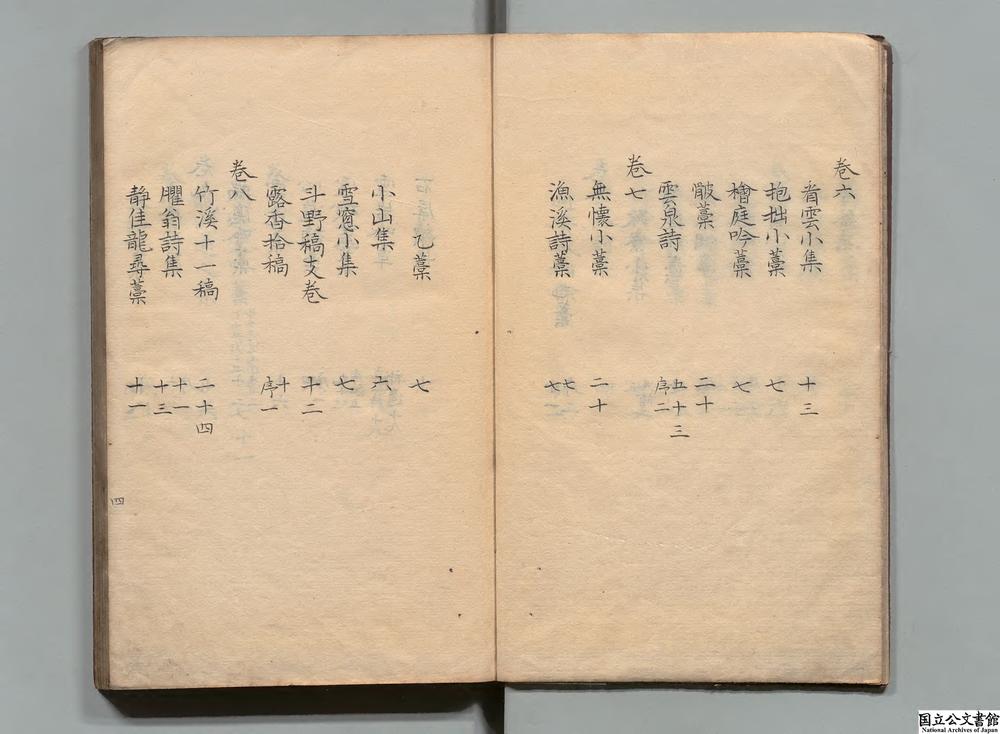 卷六
看雲小集 十三
抱拙小藁 七
檜庭吟藁 七
骳藁 二十
雲泉詩 五十三 序二
卷七
無懷小藁 二十
漁溪詩藁 七
乙藁 七
小山集 六
雪窓小集 七
斗野稿支卷 十二
露香拾稿 十 序一
卷八
竹溪十一稿 二十四
臞翁詩集 十一 十三
靜佳龍尋藁 十一
四
国立公文書館
National Archives of Japan